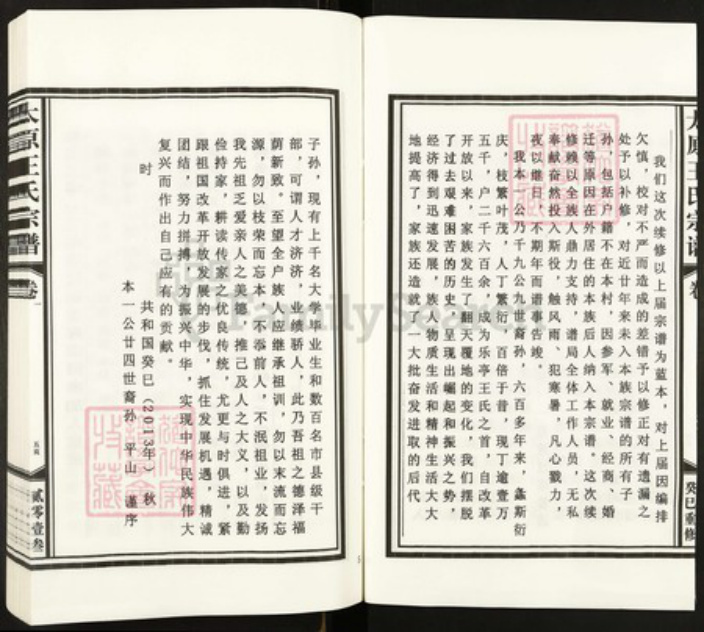 太原王氏宗谱
卷
癸巳重修
我们这次续修以上届宗谱为蓝本，对上届因编排
欠慎，校对不严而造成的差错予以修正对有遗漏之
处予以补修，对近廿年来未入本族宗谱的所有子
孙，包括户籍不在本村，因参军、就业、经商、婚
迁等原因在外居住的本族后人纳入本宗谱。这次续
修赖以全族人鼎力支持，谱局全体工作人员，无私
奉献奋然投入斯役，触风雨、犯寒暑，凡心戮力，
夜以继日，不期年而谱事告竣。
我本一公乃千九公九世裔孙，六百多年来，螽斯衍
庆，枝繁叶茂，人丁繁衍，百倍于昔，现丁逾壹万
五千，户二千六百余，成为乐亭王氏之首，自改革
开放以来，家族发生了翻天覆地的变化，我们摆脱
了过去艰难困苦的历史，呈现出崛起和振兴之势，
经济得到迅速发展，族人物质生活和精神生活大大
地提高了，家族还造就了一大批奋发进取的后代
子孙，现有上千名大学毕业生和数百名市县级干
部，可谓人才济济，业绩骄人，此乃吾祖之德泽福
荫新致。至望全户族人应继承祖训，勿以末流而忘
源，勿以枝荣而忘本，不忝前人，不泯祖业，发扬
我先祖乏爱亲人之美德，推己及人之大义，以及勤
俭持家，耕读传家之优良传统，尤更与时俱进，紧
跟祖国改革开放发展的步伐，抓住发展机遇，精诚
团结，努力拼搏，为振兴中华，实现中华民族伟大
复兴而作出自己应有的贡献。
时
共和国癸巳（2013年）秋
本一公廿四世裔孙 平山 谨序
太原王氏宗谱
卷一
贰零壹叁
FamilySearch